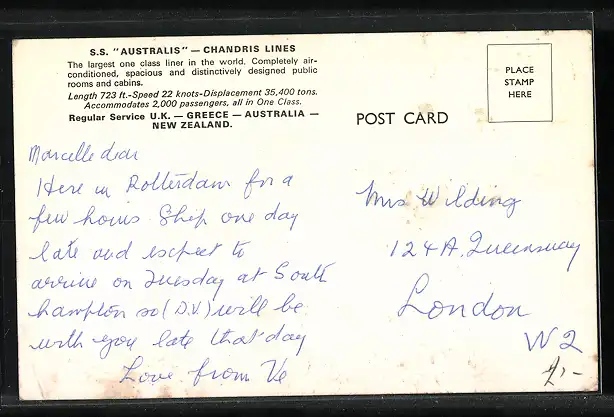 S.S. "AUSTRALIS" — CHANDRIS LINES
The largest one class liner in the world. Completely air-
conditioned, spacious and distinctively designed public
rooms and cabins.
Length 723 ft.-Speed 22 knots-Displacement 35,400 tons.
Accommodates 2,000 passengers, all in One Class.
Regular Service U.K. — GREECE — AUSTRALIA —
NEW ZEALAND.
Marcelle dear
Here in Rotterdam for a
few hours. Ship one day
late and expect to
arrive on Tuesday at South
hampton so (D.V.) will be
with you late that day
Love from Ve
POST CARD
PLACE
STAMP
HERE
Mrs Wilding
124A, Queensway
London
W2
1,-